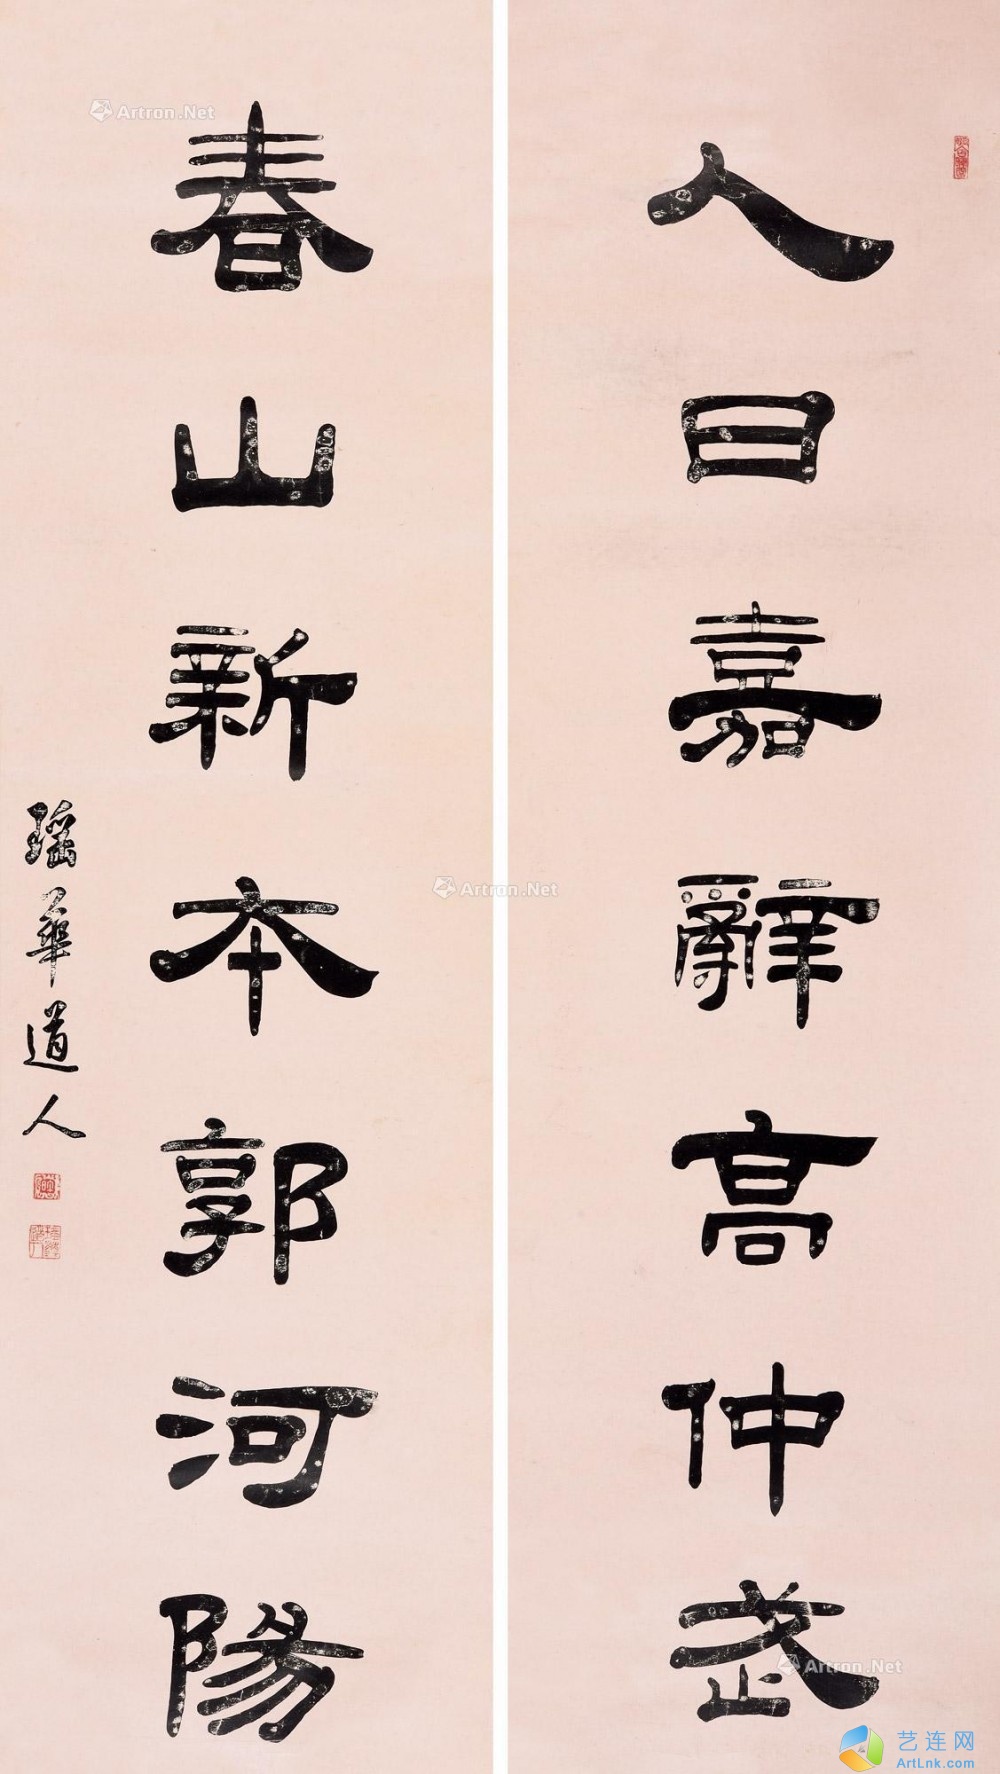 人日嘉辭高仲武
春山新本郭河陽
瑶華道人
Artron.Net
Artron.Net
Artron.Net
艺连网
ArtLnk.com